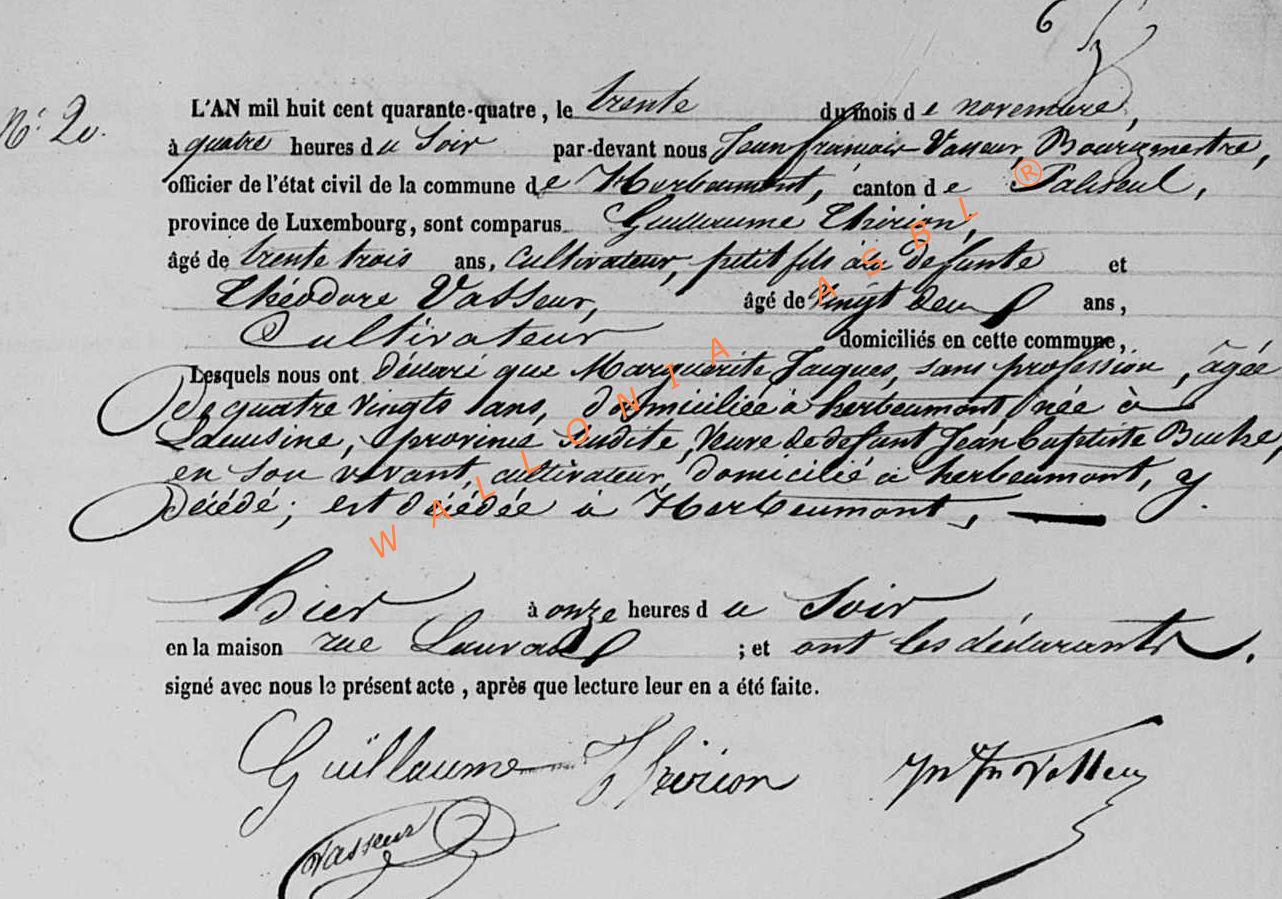 N.° 20.
L'AN mil huit cent quarante-quatre, le trente du mois de novembre,
à quatre heures du Soir par-devant nous Jean françois Vasseur, Bourgmestre,
officier de l'état civil de la commune de Herbeumont, canton de Paliseul,
province de Luxembourg, sont comparus Guillaume Thirion,
âgé de trente trois ans, Cultivateur, petit fils à la defunte et
Théodore Vasseur, âgé de vingt deux ans,
Cultivateur domiciliés en cette commune,
Lesquels nous ont déclaré que Marguerite Jacques, sans profession, âgée
de quatre vingts ans, domiciliée à herbeumont, née à
Lacuisine, province susdite, Veuve de defunt Jean Baptiste
en son vivant, cultivateur, domicilié à herbeumont, y
décédé; est décédée à Herbeumont,
hier à onze heures du Soir
en la maison rue ; et ont les déclarants
signé avec nous le présent acte, après que lecture leur en a été faite.
Guillaume Thirion
Vasseur
WALLONIA ASBL ®